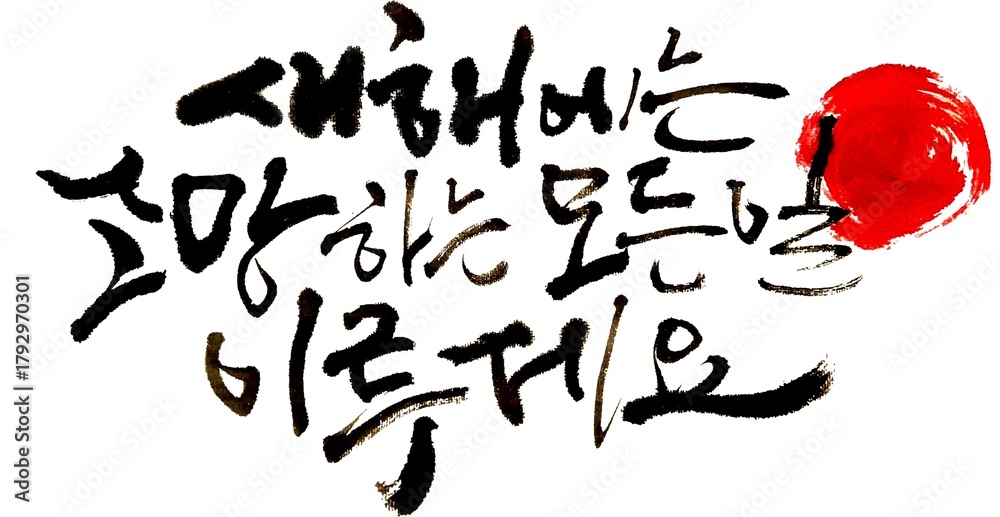 새해에는
소망하는 모든 일
이루게요
Adobe Stock | #1792970301